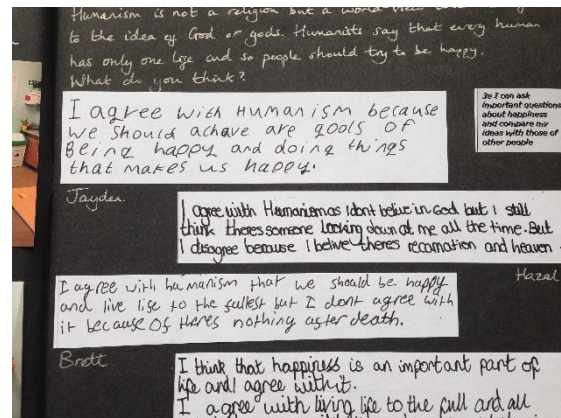 Humanism is not a religion but a world view
to the idea of God or gods. Humanists say that every human
has only one life and so people should try to be happy.
What do you think?
I agree with Humanism because
we should achave are gools of
Being happy and doing things
that makes us happy.
3e I can ask
important questions
about happiness
and compare my
ideas with those of
other people
Jayden
I agree with Humanism as I dont belive in God but I still
think theres someone looking down at me all the time. But
I disagree because I belive theres recarnation and heaven.
Hazel
I agree with humanism that we should be happy
and live life to the fullest but I dont agree with
it because of theres nothing after death.
Brett
I think that happiness is an important part of
life and I agree with it.
I agree with living life to the full and all